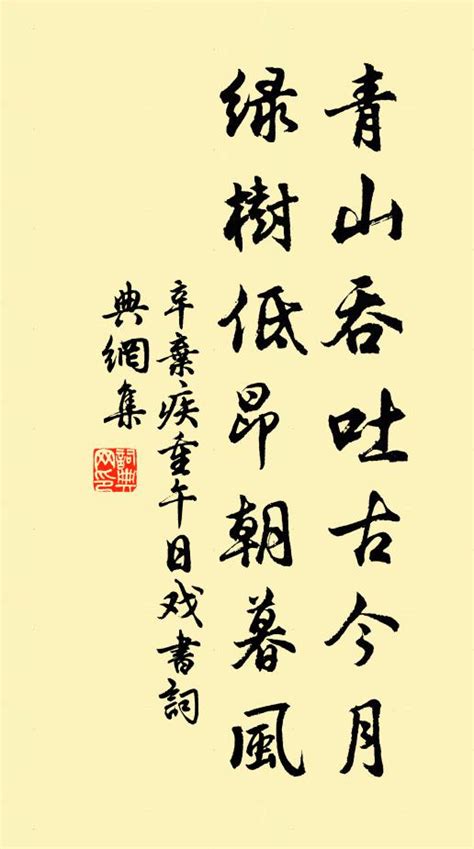 青山吞吐古今月
绿樹低昂朝暮風
辛棄疾重午日戏書詞
典網集
詞典网印